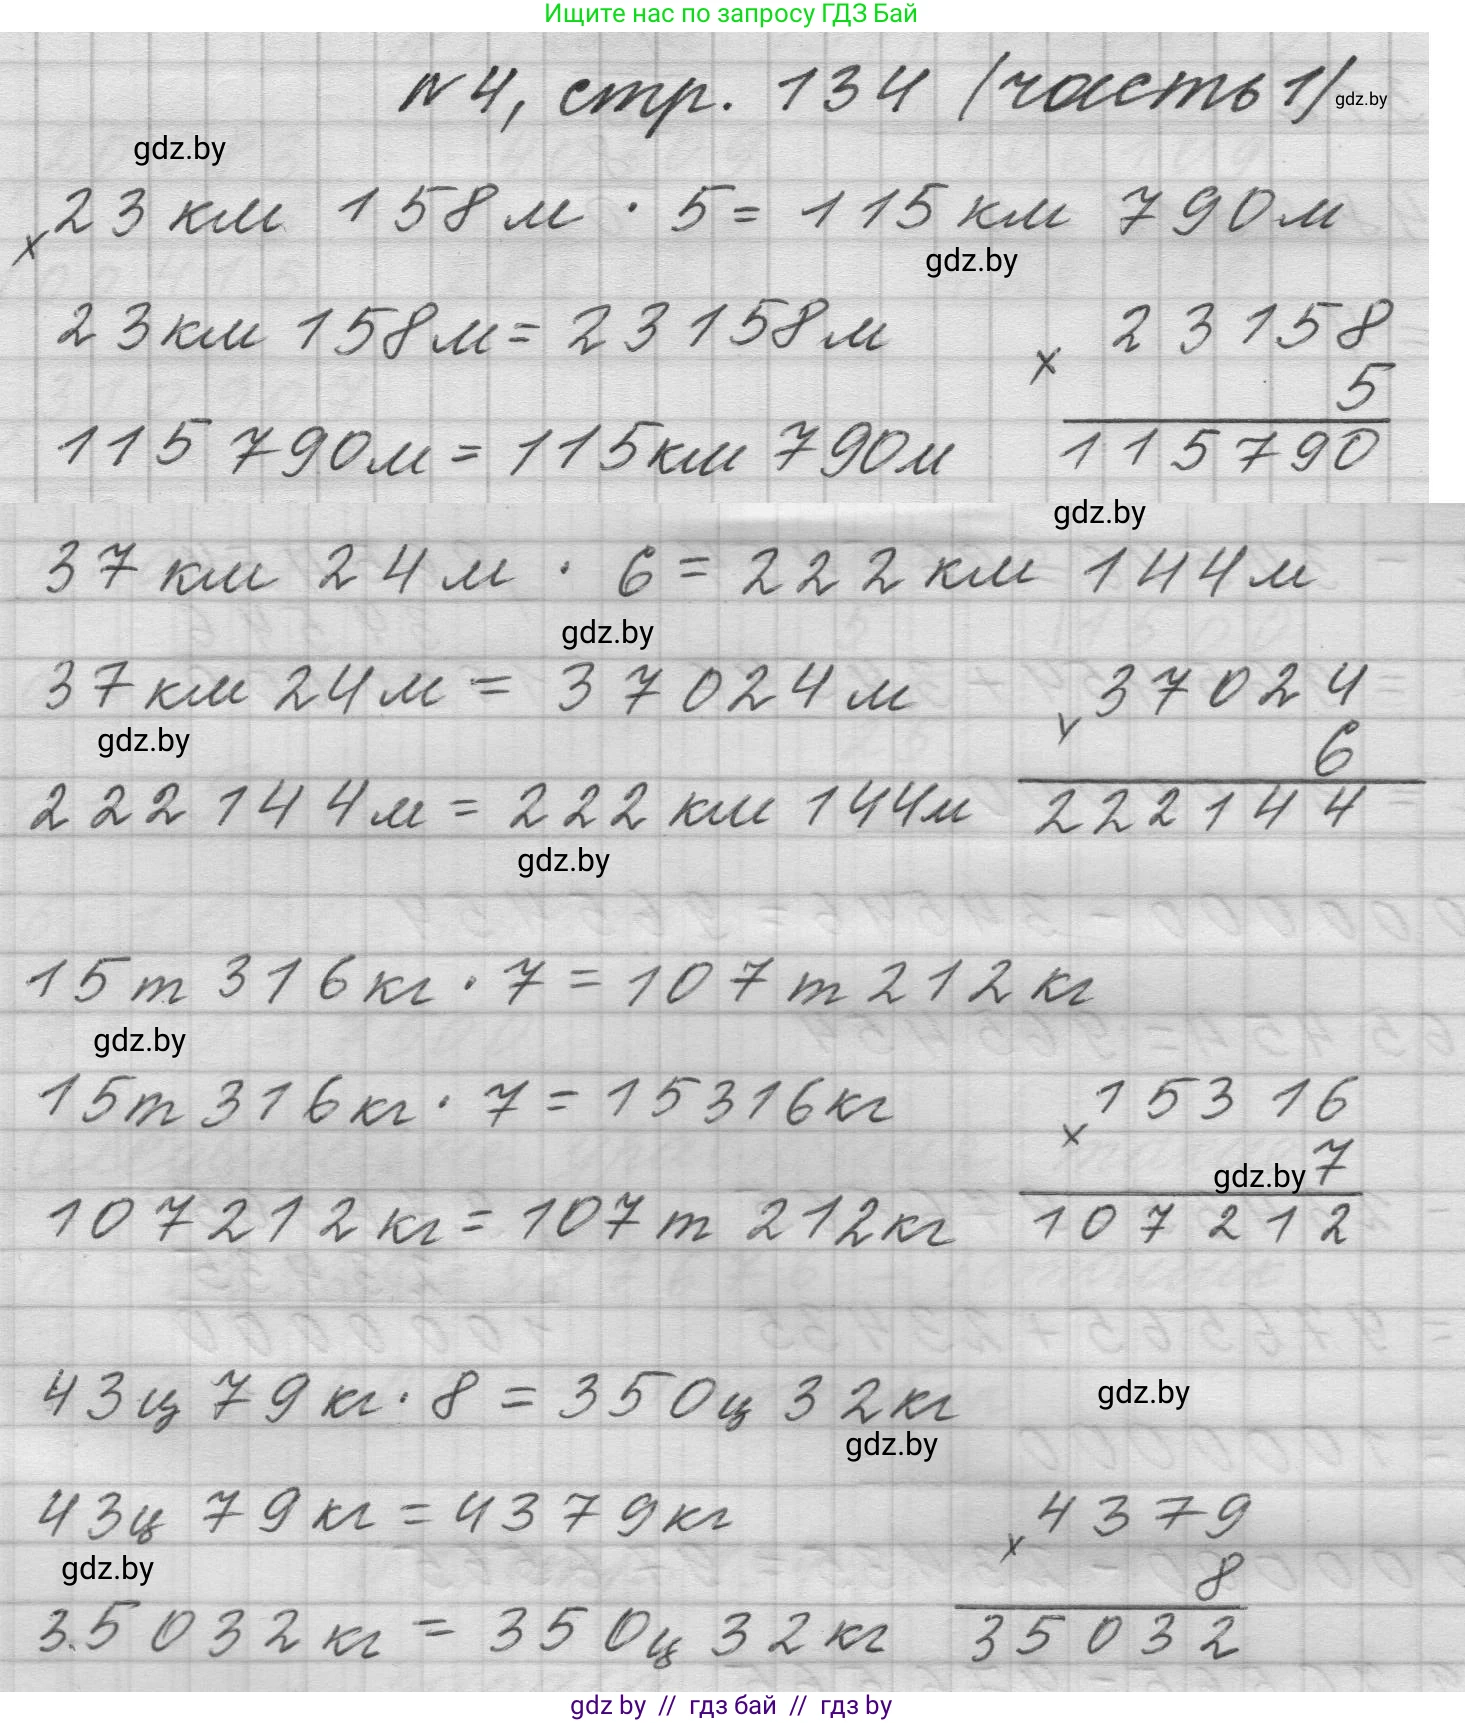 Ищите нас по запросу ГДЗ Бай
N 4, стр. 134 (часть 1)
gdz.by
gdz.by
23 км 158 м · 5 = 115 км 790 м
x
gdz.by
23 км 158 м = 23158 м
23158
x
5
115 790 м = 115 км 790 м
115790
gdz.by
37 км 24 м · 6 = 222 км 144 м
gdz.by
37 км 24 м = 37024 м
37024
x
6
gdz.by
222 144 м = 222 км 144 м
222144
gdz.by
15 т 316 кг · 7 = 107 т 212 кг
gdz.by
15 т 316 кг · 7 = 15316 кг
15316
x
7
gdz.by
107212 кг = 107 т 212 кг
107212
43 ц 79 кг · 8 = 350 ц 32 кг
gdz.by
gdz.by
43 ц 79 кг = 4379 кг
4379
x
8
gdz.by
35032 кг = 350 ц 32 кг
35032
gdz by // гдз бай // гдз by